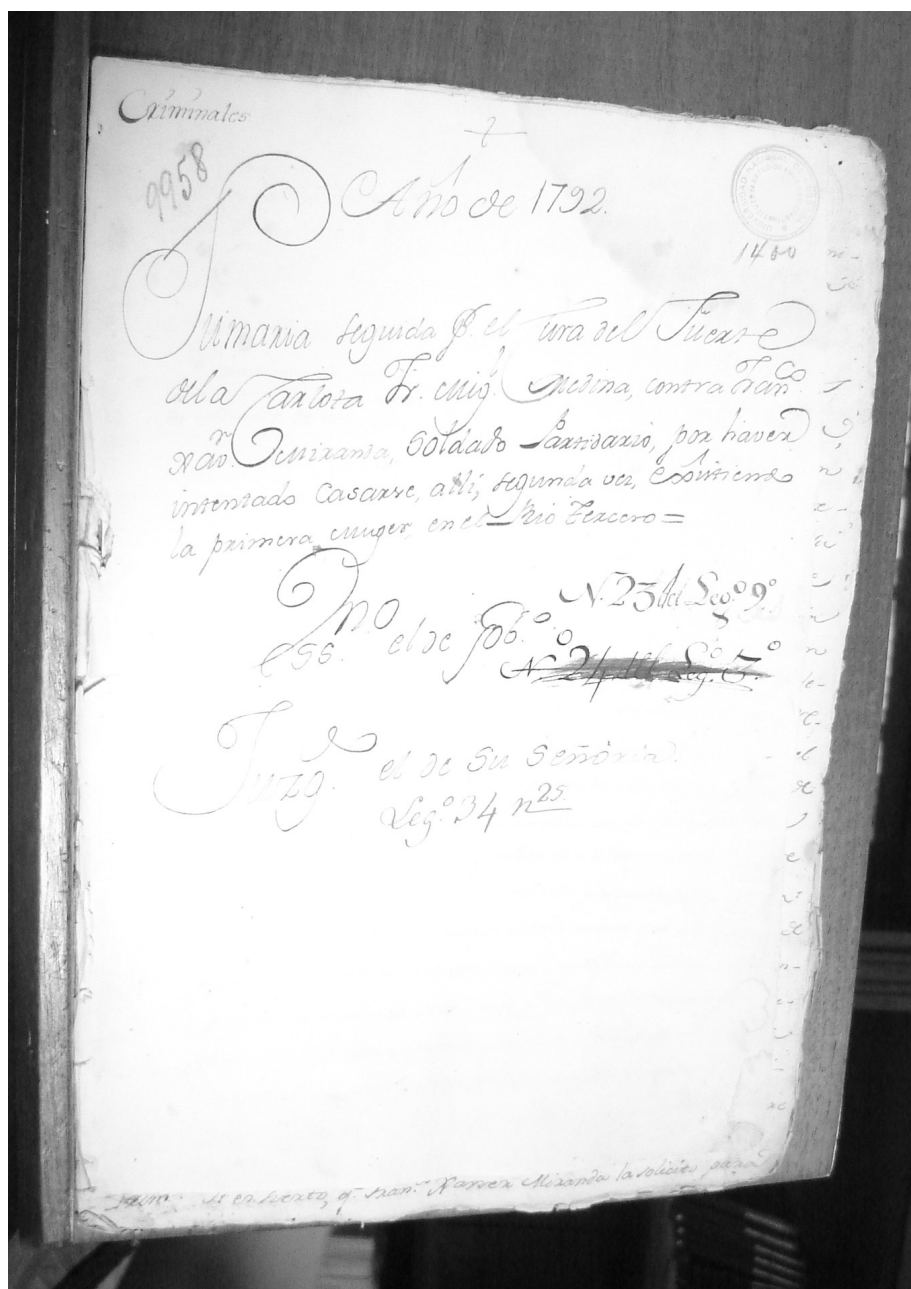 Criminales
9958
Año de 1792.
1400
Sumaria seguida pr. el Cura del Fuerte
de la Carlota Fr. Migl. Medina, contra Franco
Xavr. Miranda, Soldado Partidario, por haver
intentado Casarse, alli, segunda vez, existiendo
la primera Muger, en el Rio Tercero =
N. 23 del Lego. 9o.
Essno. el de Gobo.
No. 24 del Lego. 6.o
Juzgo. el de Su Señoria.
Lego. 34 n 25.
si es cierto, q. Fran.co Xavier Miranda la solicitó para